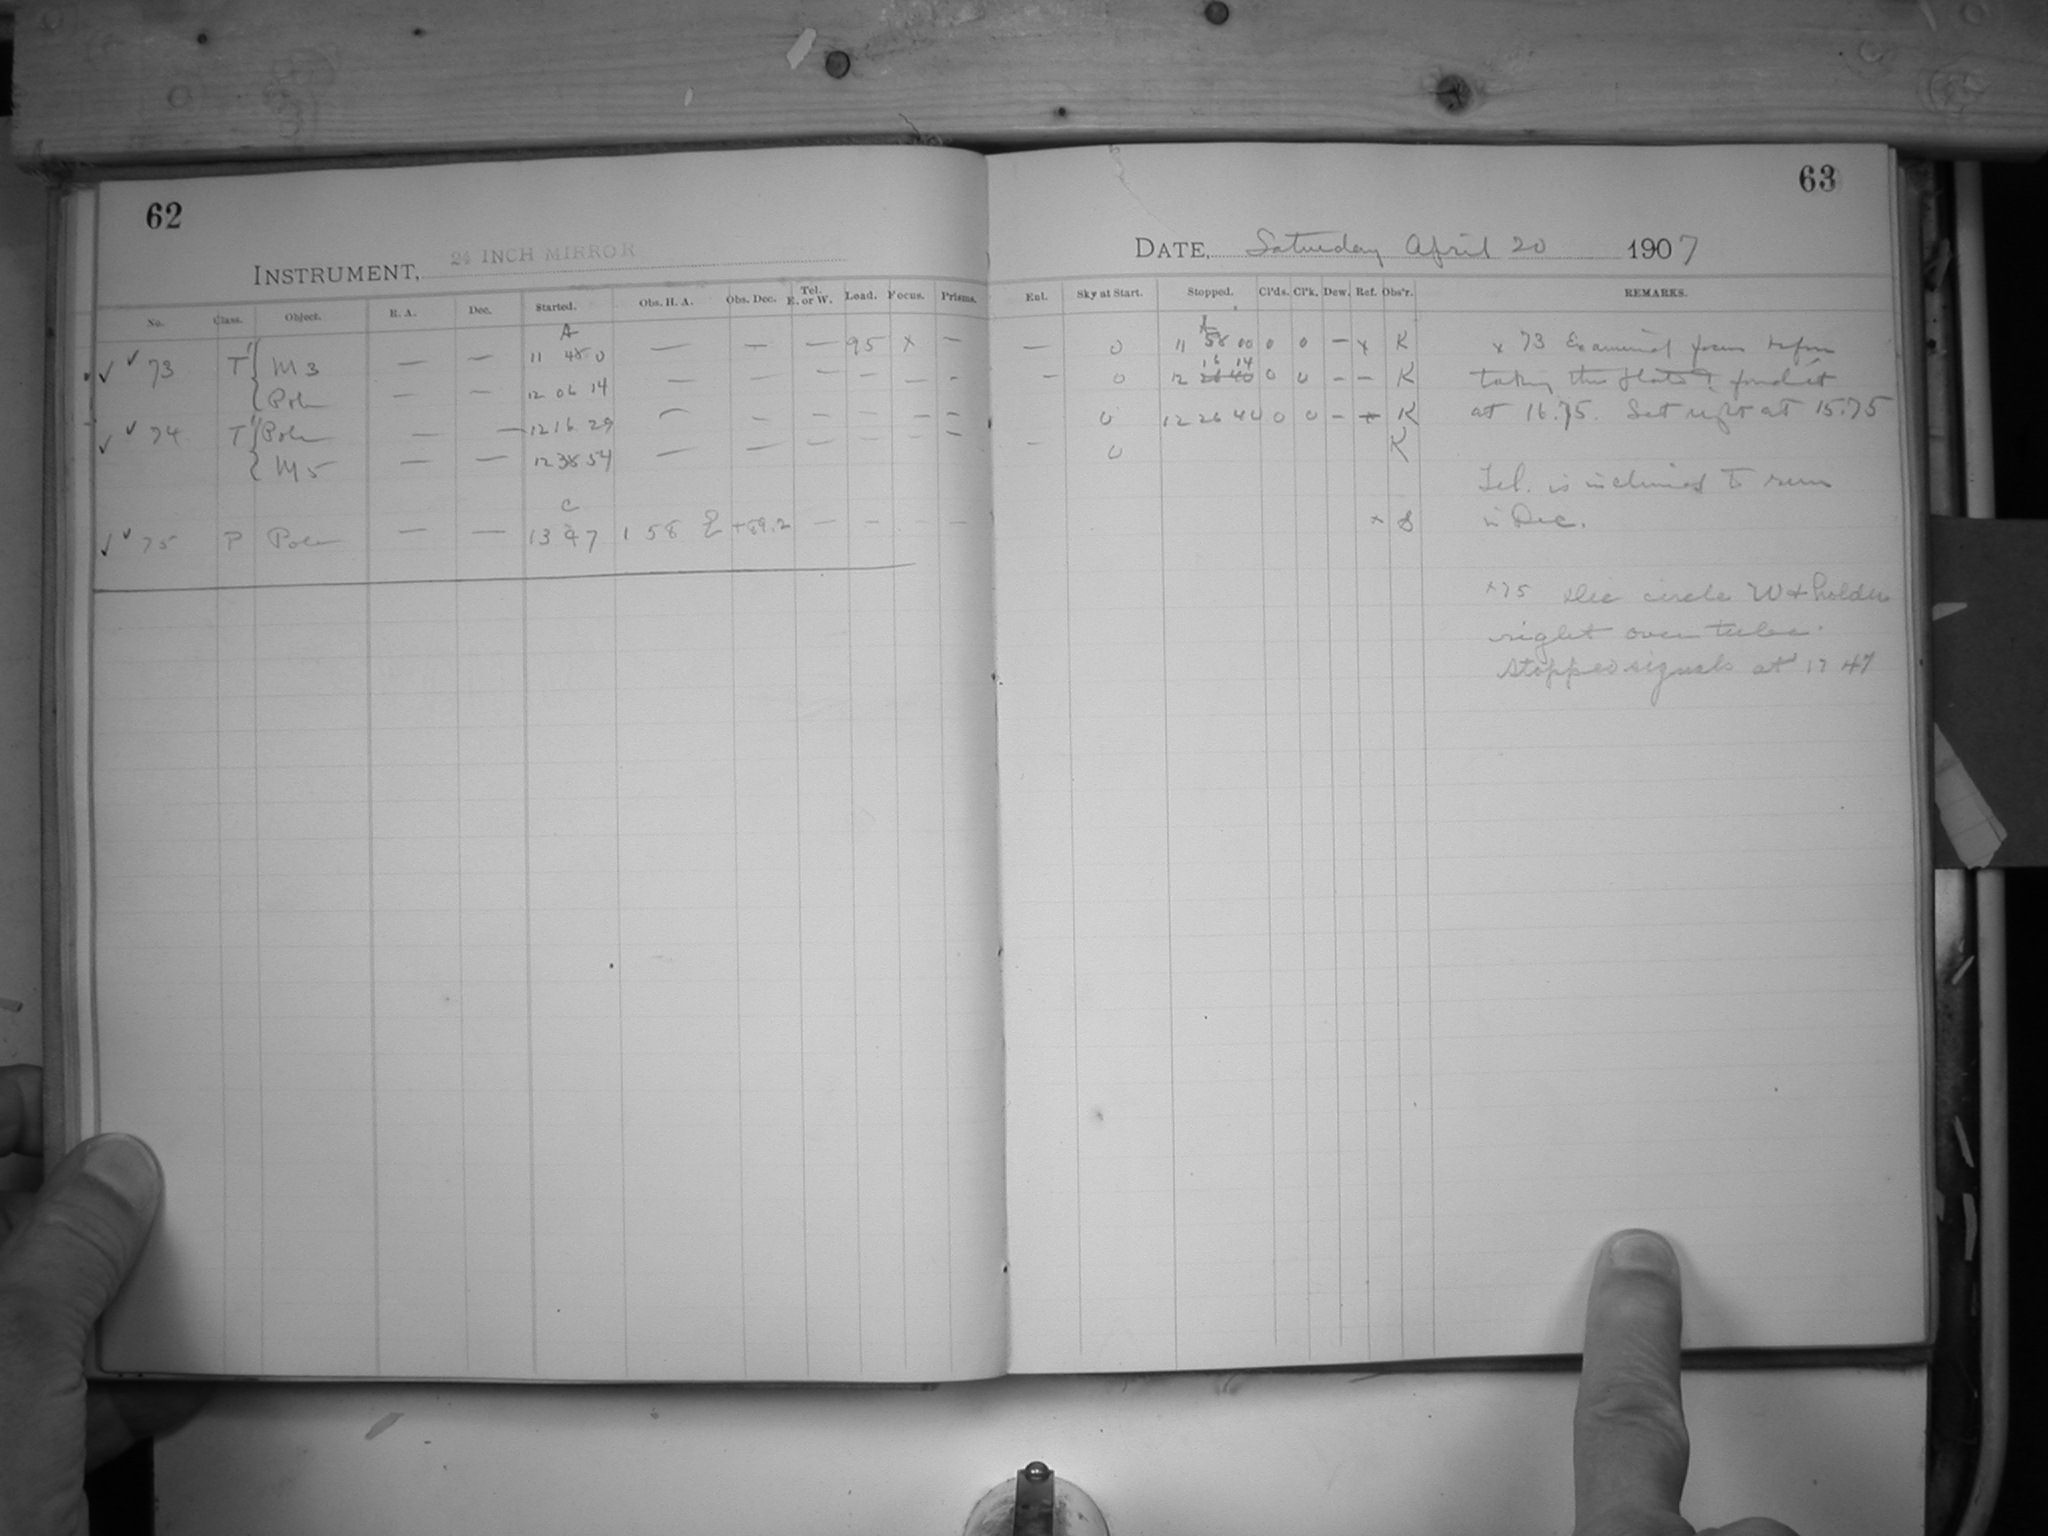 62
INSTRUMENT, 24 INCH MIRROR
No. Class. Object. R. A. Dec. Started. Obs. H. A. Obs. Dec. Tel. E. or W. Load. Focus. Prisms.
A
✓ ✓ 73 T" { M 3 — — 11 48 0 — — — 95 x —
Pole — — 12 06 14 — — — — — -
✓ ✓ 74 T" { Pole — — 12 16 29 — — — — — —
M 5 — — 12 38 54 — — — — — —
C
✓ ✓ 75 P Pole — — 13 47 1 58 E +89.2 — — — —
63
DATE, Saturday April 20 1907
Ent. Sky at Start. Stopped. Cl'ds. Cl'k. Dew. Ref. Obs'r. REMARKS.
A
— 0 11 58 00 0 0 — x K x 73 Examined focus before
16 14
— 0 12 26 40 0 0 - — K taking this plate & found it
0 12 26 44 0 0 - x K at 16.75. Set right at 15.75
— 0 K
Tel. is inclined to run
x S in Dec.
x 75 Dec circle W & holder
right over tube.
Stopped signals at 17 47